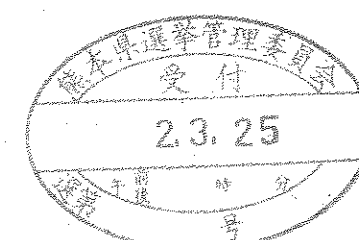 熊本県選挙管理委員会
受付
2.3.25
午前後 時 分
号